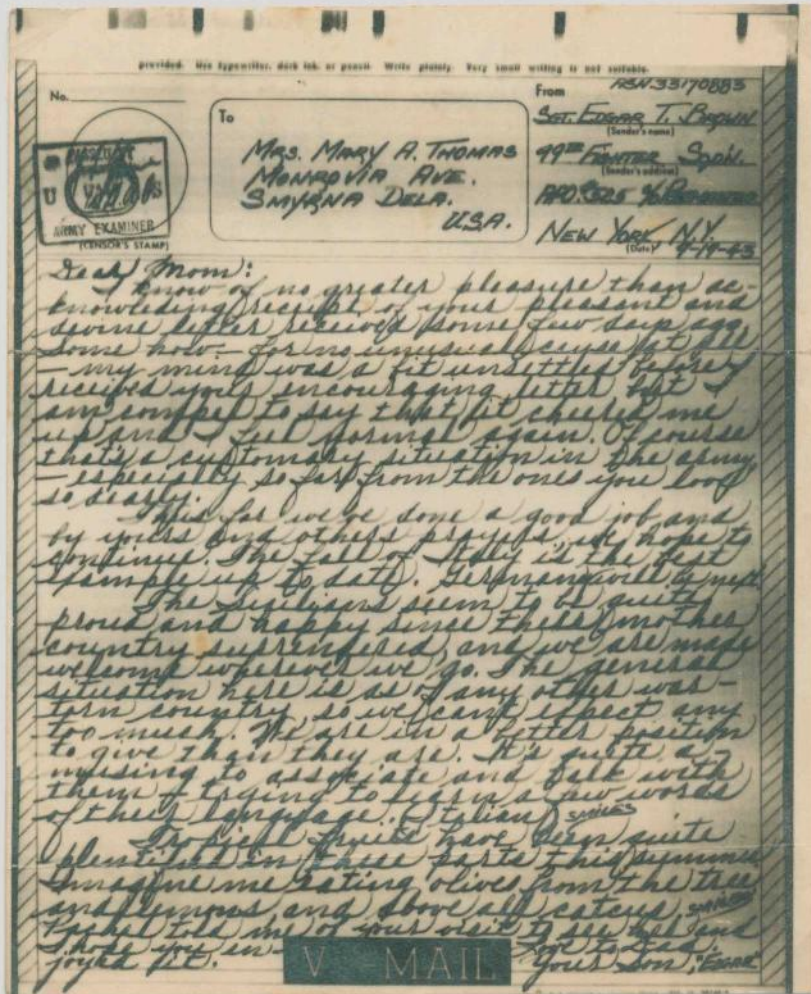 provided. Use typewriter, dark ink, or pencil. Write plainly. Very small writing is not suitable.
No.
To
Mrs. Mary A. Thomas
Monrovia Ave.
Smyrna Dela.
U.S.A.
From
ASN.33170883
Sgt. Edgar T. Brown
(Sender's name)
99th Fighter Sqdn.
(Sender's address)
APO #525 %
New York, N.Y.
(Date) 9-19-43
U S
ARMY EXAMINER
(CENSOR'S STAMP)
Dear Mom:
I know of no greater pleasure than ac-
knowledging receipt of your pleasant and
devine letter received some few days ago.
Some how - for no unusual cause at all
- my mind was a bit unsettled before I
received your encouraging letter but I
am compel to say that it cheered me
up and I feel normal again. Of course
that's a customary situation in the army
- especially so far from the ones you love
so dearly.
Thus far we've done a good job and
by yours and others prayers, we hope to
continue. The fall of Italy is the best
example up to date. Germany will be next.
The Sicilians seem to be quite
proud and happy since their mother
country surrendered, and we are made
welcome wherever we go. The general
situation here is as of any other war-
torn country, so we can't expect any
too much. We are in a better position
to give than they are. It's quite a-
musing to associate and talk with
them - trying to learn a few words
of their language. (Italian) smiles
Tropical fruits have been quite
plentiful in these parts this summer
Imagine me eating olives from the tree
and lemons and above all catcus. smiles
told me of your visit to see her and
I hope you in- Love to Dad.
joyed it. Your Son, "Edgar"
V - MAIL